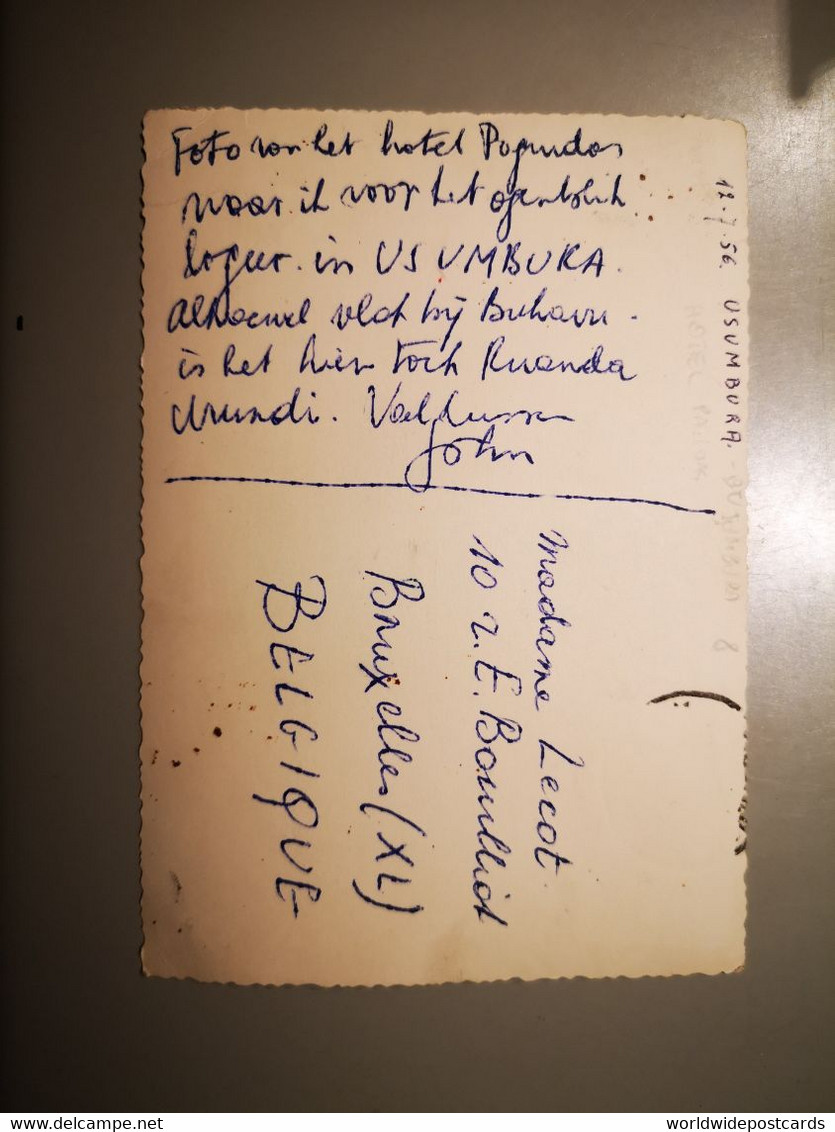 Foto van het hotel Paguidas
waar ik voor het ogenblik
logeer. in USUMBURA.
Alhoewel vlak bij Bukavu.
is het hier toch Ruanda
Urundi. Valdussen
John
12.7.56. USUMBURA.
Madame Lecot
10 r. E. Bouilliot
Bruxelles (XL)
BELGIQUE
delcampe.net
worldwidepostcards